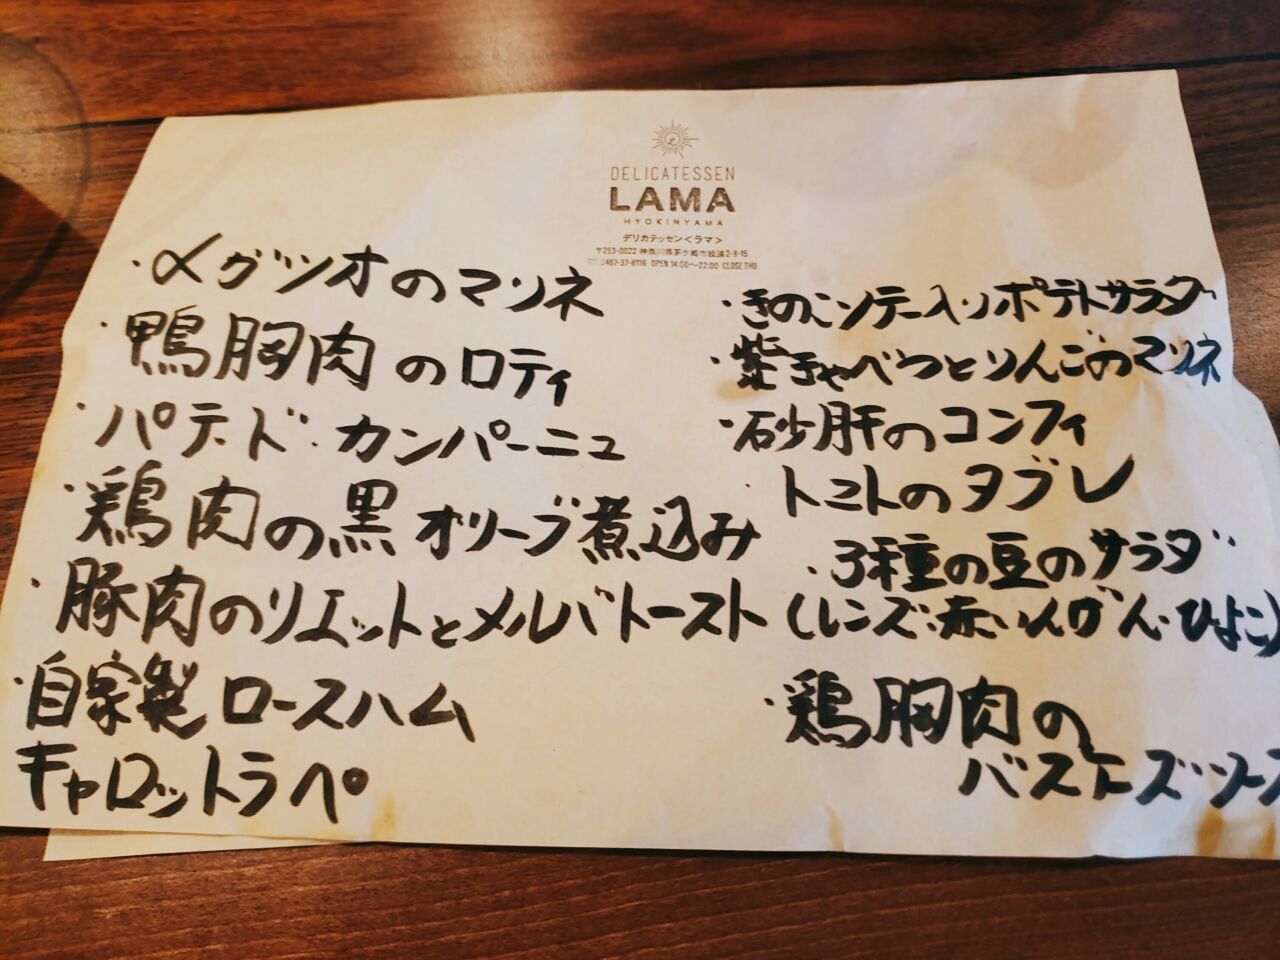 DELICATESSEN
LAMA
HYOKINYAMA
デリカテッセン<ラマ>
〒253-0022 神奈川県茅ケ崎市松浪2-8-15
TEL.0467-37-8116 OPEN 14:00〜22:00 CLOSE THU
・〆ガツオのマリネ
・鴨胸肉のロティ
・パテ・ド・カンパーニュ
・鶏肉の黒オリーブ煮込み
・豚肉のリエットとメルバトースト
・自家製ロースハム
キャロットラペ
・きのこソテー入りポテトサラダ
・紫きゃべつとりんごのマリネ
・砂肝のコンフィ
・トマトのタブレ
・3種の豆のサラダ
(レンズ・赤いんげん・ひよこ)
・鶏胸肉の
バスト・ズ・ソース